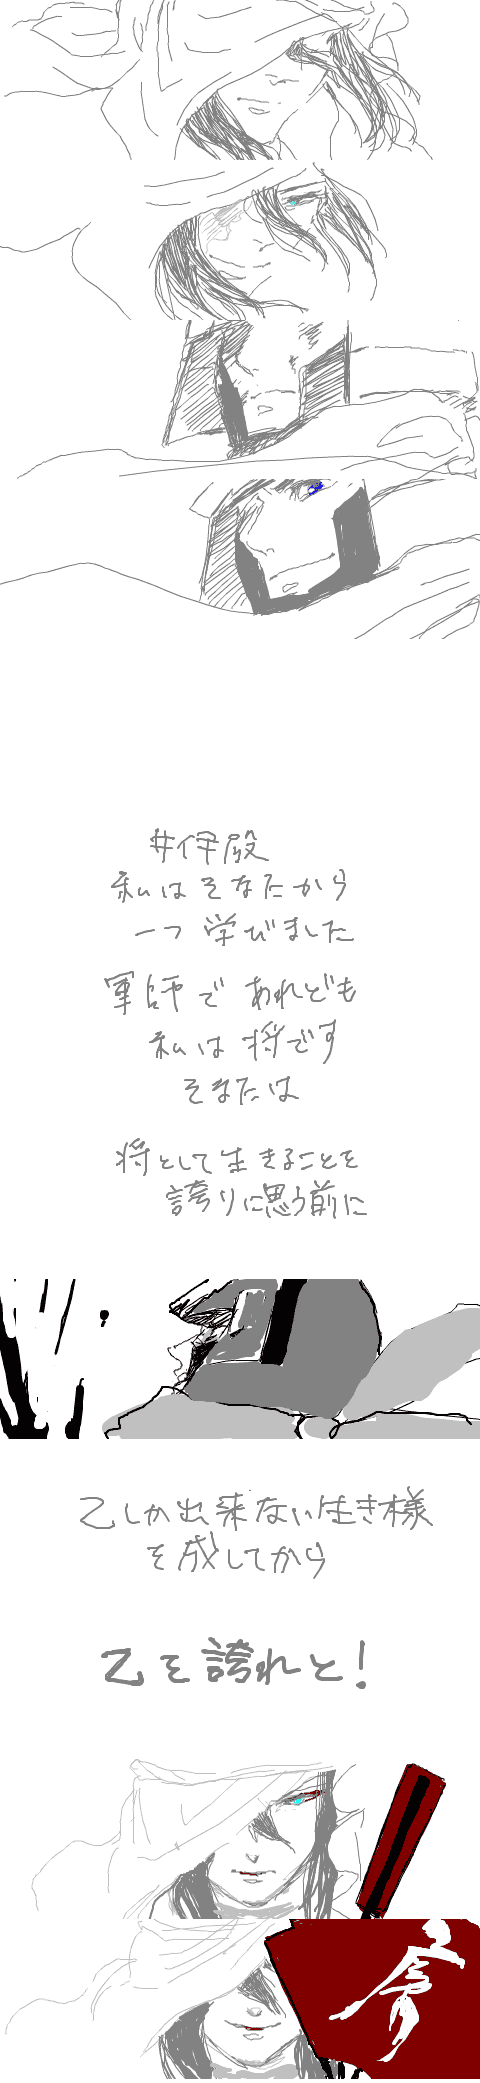 井伊殿
私はそなたから
一つ学びました
軍師であれども
私は将です
そなたは
将として生きることを
誇りに思う前に
乙しか出来ない生き様
を成してから
乙を誇れと!